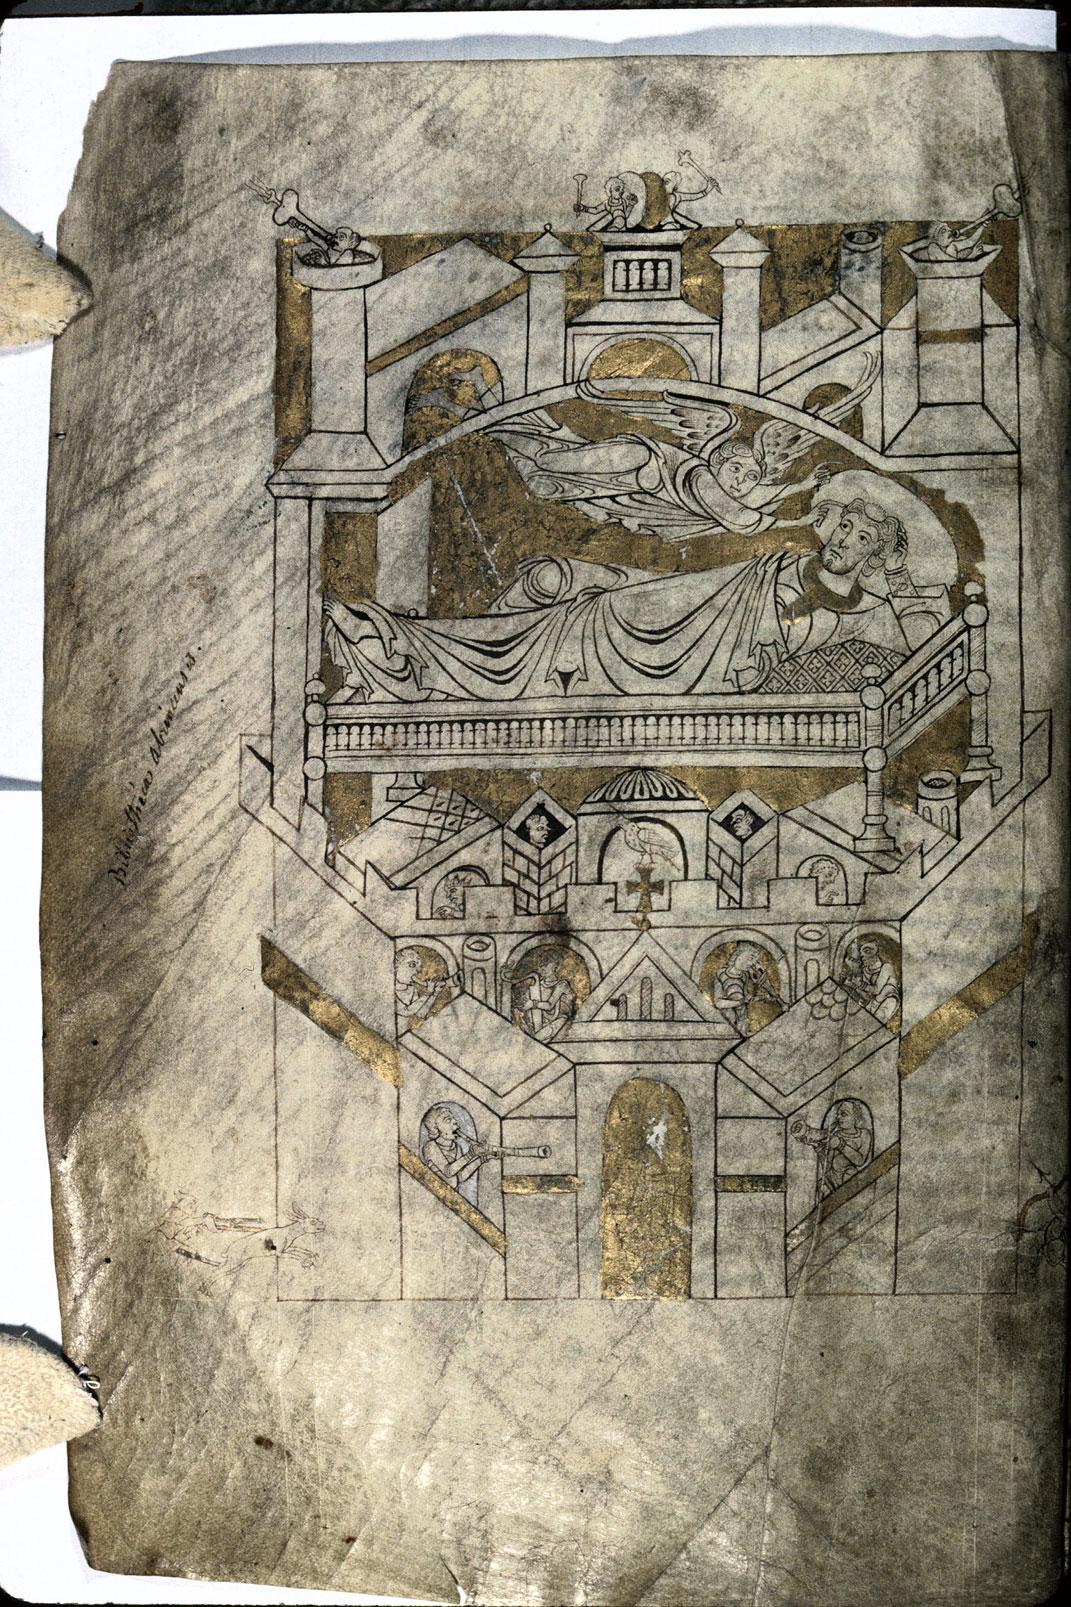 Bibliothèca abrincensis.